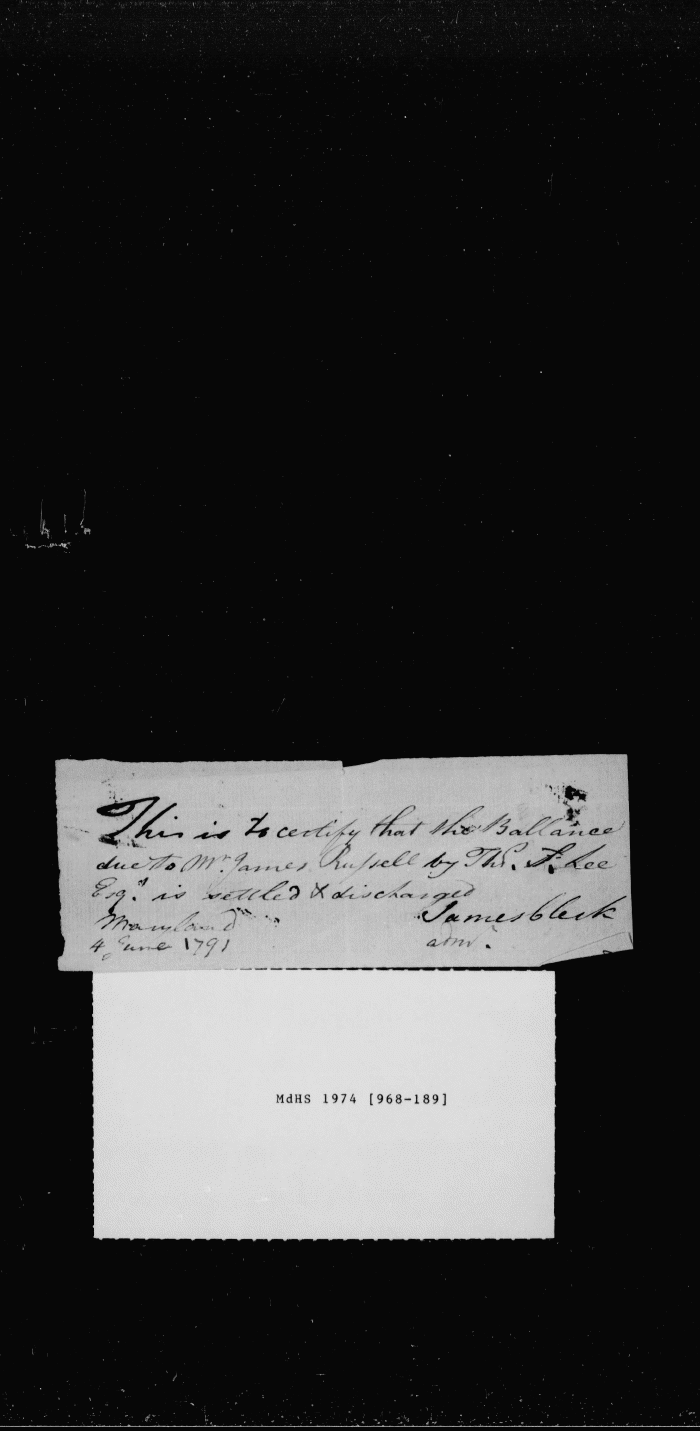 This is to certify that the Ballance
due to Mr. James Russell by Thos. S. Lee
Esqr. is settled & discharged
Maryland James Clerk
4 June 1791 admr.
MdHS 1974 [968-189]